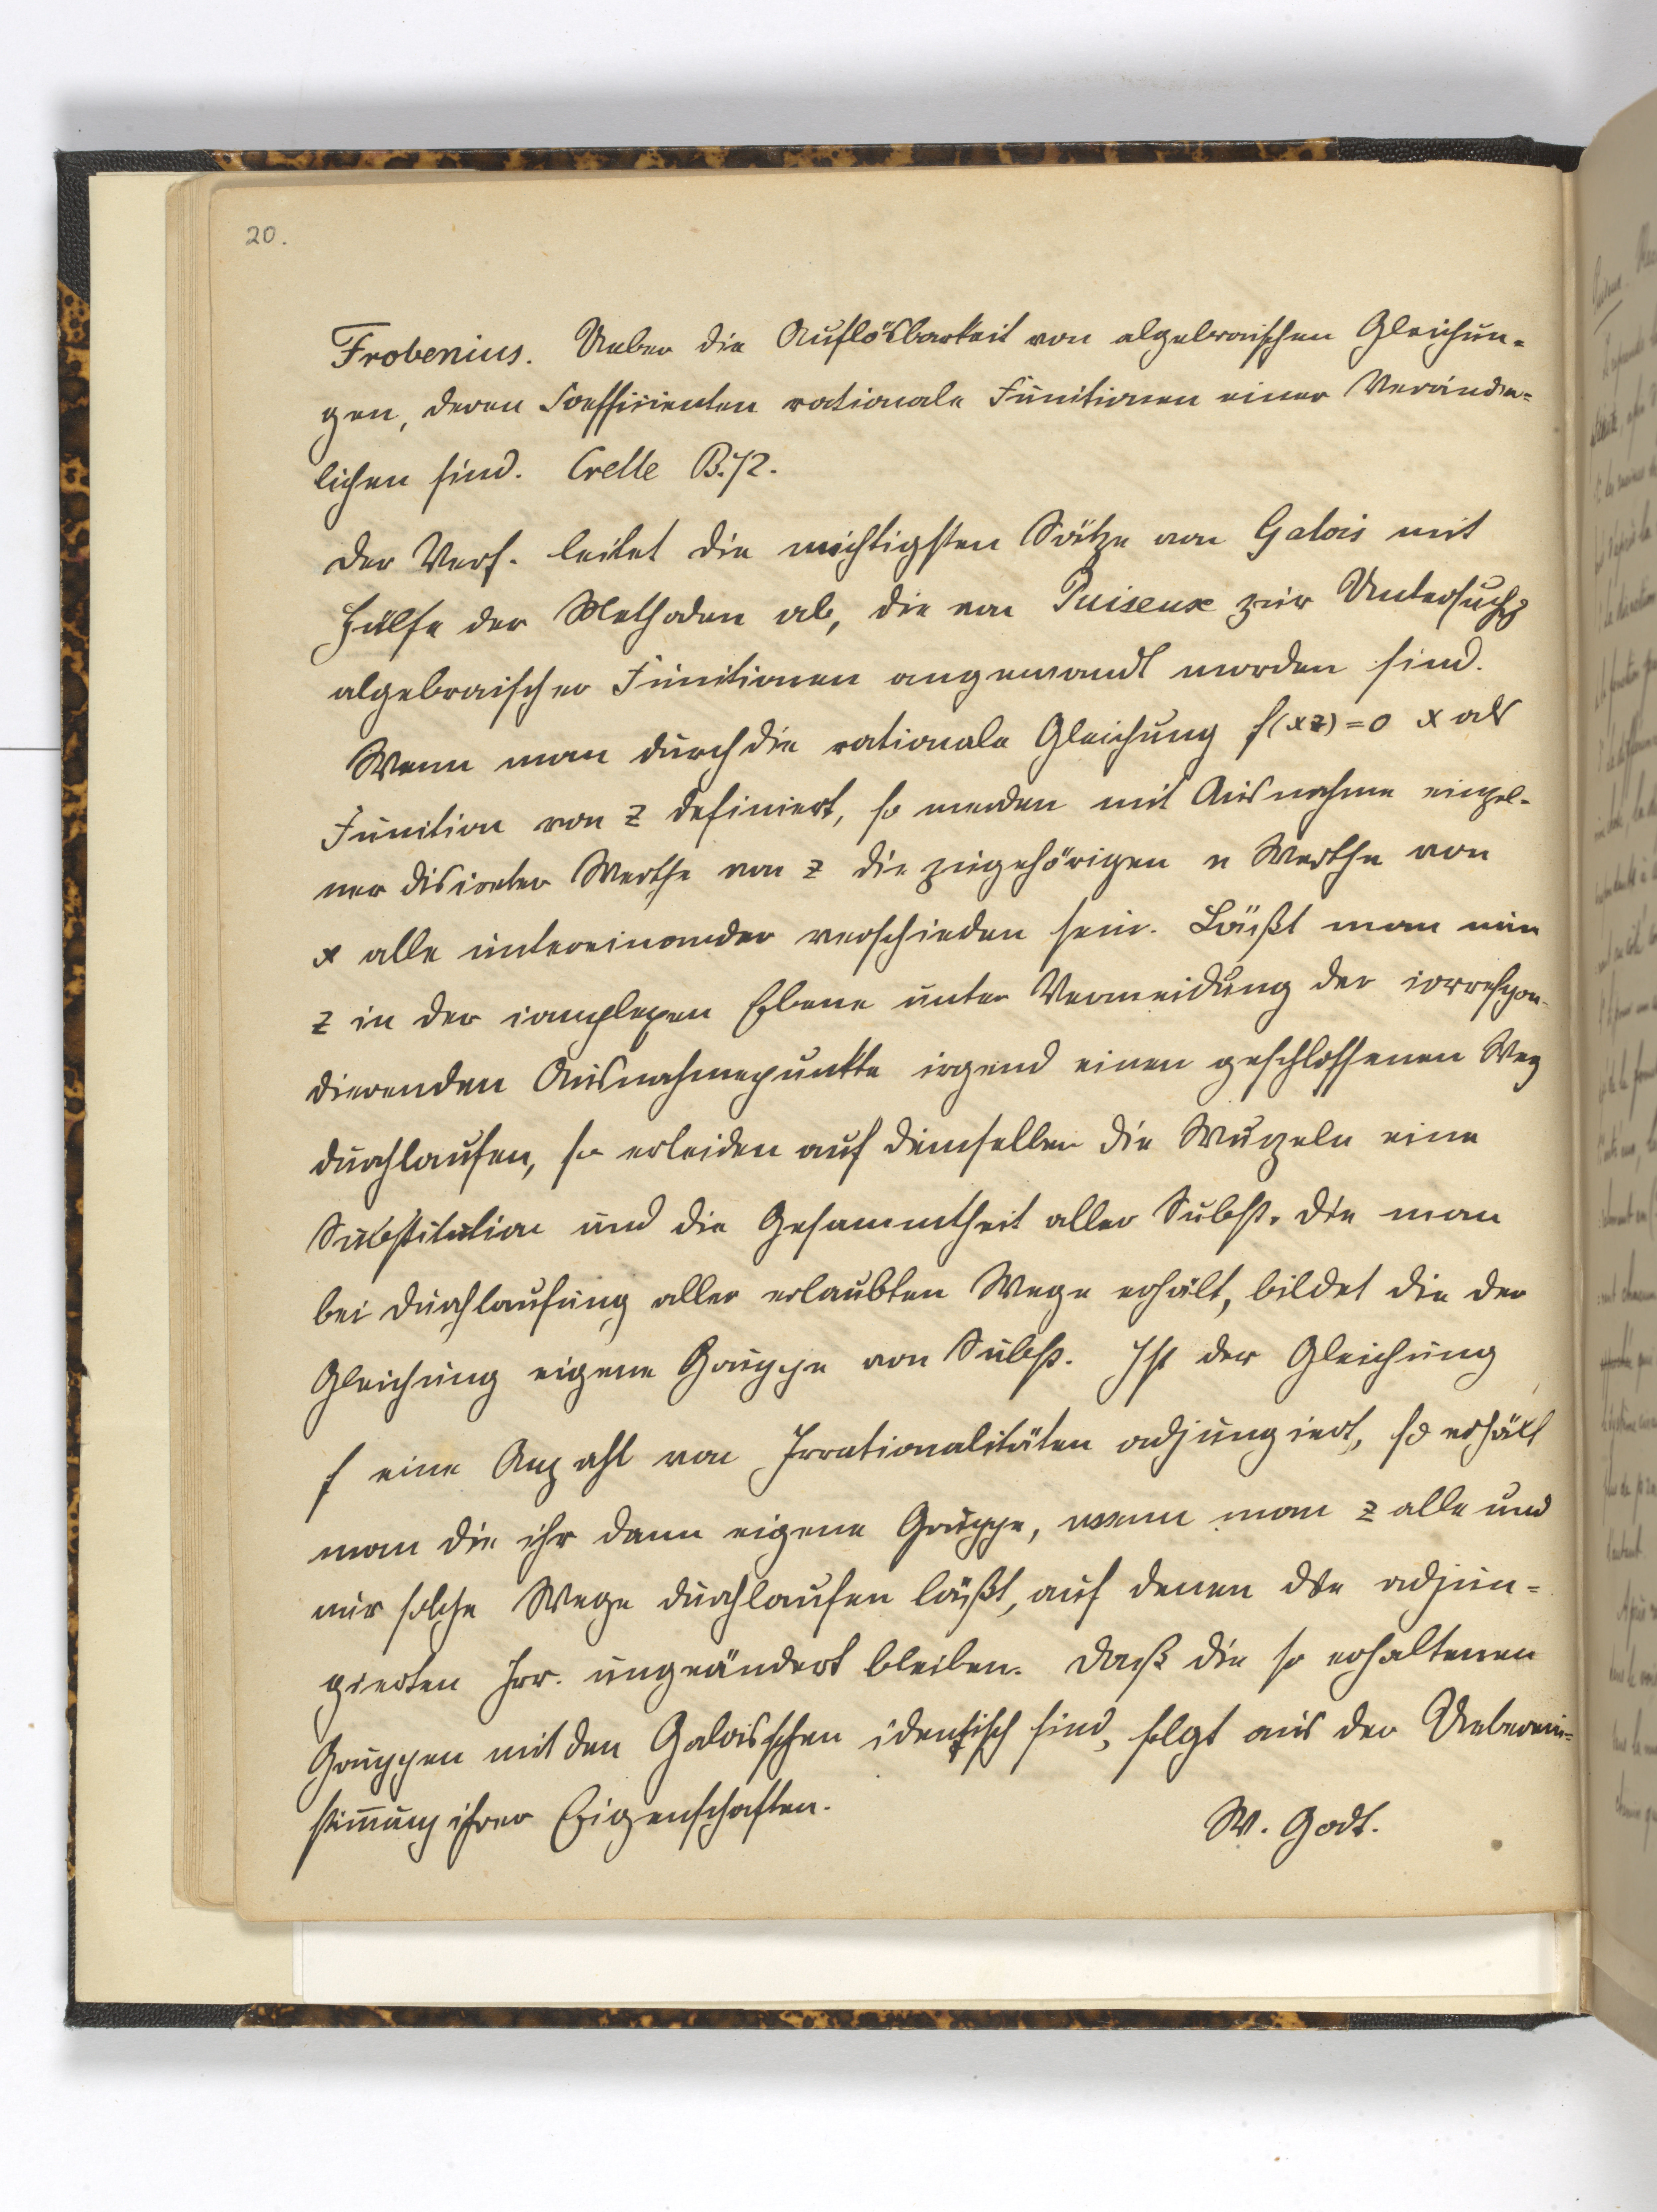 20.
Frobenius. Ueber die Auflösbarkeit von algebraischen Gleichun-
gen, deren Coefficienten rationale Functionen einer Veränder-
lichen sind. Crelle B. 72.
Der Verf. leitet die wichtigsten Sätze von Galois mit
Hülfe der Methoden ab, die von Puiseux zur Untersuchg
algebraischer Functionen angewandt worden sind.
Wenn man durch die rationale Gleichung f(xz)=0 x als
Function von z definiert, so werden mit Ausnahme einzel-
ner discreter Werthe von z die zugehörigen n Werthe von
x alle untereinander verschieden sein. Läßt man nun
z in der complexen Ebene unter Vermeidung der correspon-
dierenden Ausnahmepunkte irgend einen geschlossenen Weg
durchlaufen, so erleiden auf demselben die Wurzeln eine
Substitution und die Gesammtheit aller Subst. die man
bei Durchlaufung aller erlaubten Wege erhält, bildet die der
Gleichung eigene Gruppe von Subst. Ist der Gleichung
f eine Anzahl von Irrationalitäten adjungiert, so erhält
man die ihr dann eigene Gruppe, wenn man z alle und
nur solche Wege durchlaufen läßt, auf denen die adjun-
gierten Irr. ungeändert bleiben. Daß die so erhaltenen
Gruppen mit den Galoisschen identisch sind, folgt aus der Ueberein-
stimmung ihrer Eigenschaften.
W. Godt.